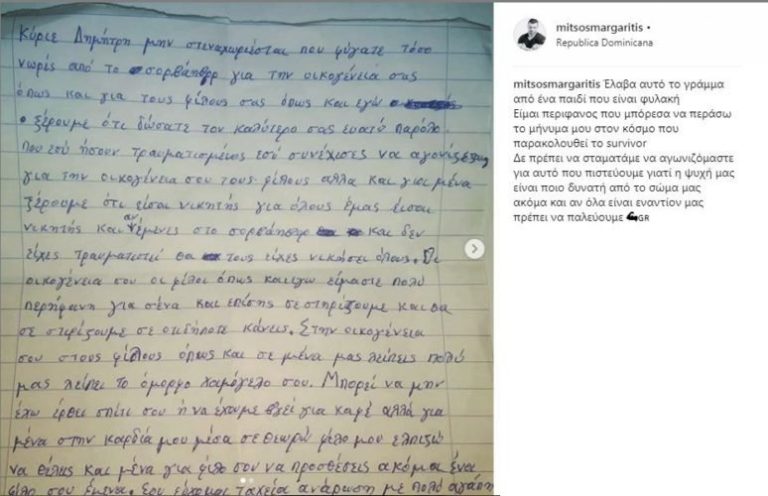 Κύριε Δημήτρη μην στεναχωριέσται που φύγατε τόσο
νωρίς από το σορβάηβορ για την οικογένειά σας
όπως και για τους φίλους σας όπως και εγώ
ξέρουμε ότι δώσατε τον καλύτερο σας εαυτό παρόλο
που εσύ ήσουν τραυματισμένος εσύ συνέχισες να αγωνίζεσαι
για την οικογένεια σου τους φίλους αλλα και για μένα
ξέρουμε ότι είσαι νικητής για όλους έμας είσαι
νικητής και αν έμενες στο σορβάηβορ και δεν
είχες τραυματιστεί θα τους είχες νικήσει όλους. Οι
οικογένεια σου οι φίλοι όπως και εγω είμαστε πολύ
περήφανη για σένα και επίσης σε στηρίζουμε και θα
σε στιρίζουμε σε οτιδήποτε κάνεις. Στην οικογένεια
σου στους φίλους όπως και σε μένα μας λείπεις πολύ
μας λείπει το όμορφο χαμόγελο σου. Μπορεί να μην
έχω έρθει σπίτι σου ή να έχουμε βγεί για καφέ αλλά για
μένα στην καρδιά μου μέσα σε θεωρώ φίλο μου ελπίζω
να θέλεις και μένα για φίλο σου να προσθέσεις ακόμα ένα
φίλο σου έμενα. Σου εύχομαι ταχεία ανάρωση με πολύ αγάπη
mitsosmargaritis •
Republica Dominicana
mitsosmargaritis Έλαβα αυτό το γράμμα
από ένα παιδί που είναι φυλακή
Είμαι περιφανος που μπόρεσα να περάσω
το μήνυμα μου στον κόσμο που
παρακολουθεί το survivor
Δε πρέπει να σταματάμε να αγωνιζόμαστε
για αυτό που πιστεύουμε γιατί η ψυχή μας
είναι ποιο δυνατή από το σώμα μας
ακόμα και αν όλα είναι εναντίον μας
πρέπει να παλεύουμε 💪🇬🇷